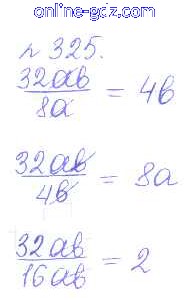 online-gdz.com
№ 325.
32ab/8a = 4b
32ab/4b = 8a
32ab/16ab = 2